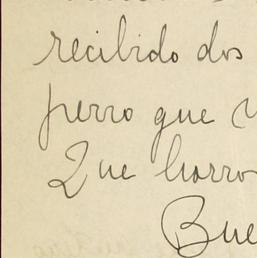 recibido dos
perro que
Que horro
Bue